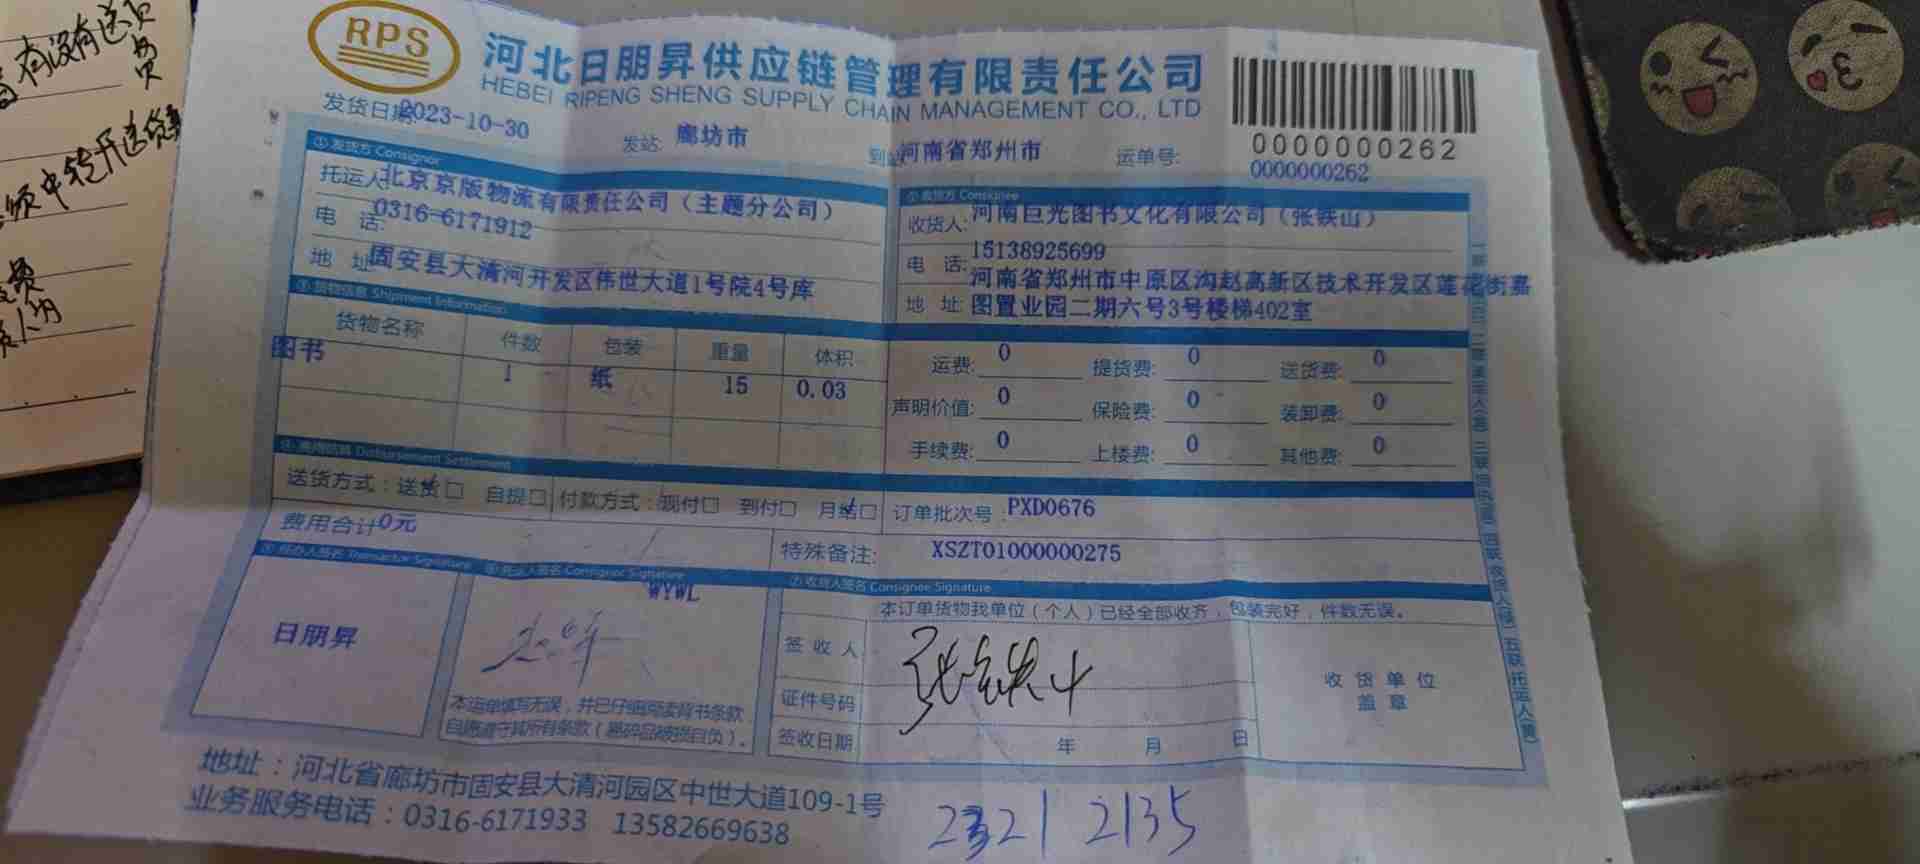 RPS
河北日朋昇供应链管理有限责任公司
HEBEI RIPENG SHENG SUPPLY CHAIN MANAGEMENT CO., LTD
发货日期 2023-10-30
发站: 廊坊市
到站 河南省郑州市
运单号:
0000000262
0000000262
① 发货方 Consignor
托运人 北京京版物流有限责任公司（主题分公司）
电 话: 0316-6171912
地 址 固安县大清河开发区伟世大道1号院4号库
收货方 Consignee
收货人: 河南巨光图书文化有限公司（张铁山）
电 话: 15138925699
河南省郑州市中原区沟赵高新区技术开发区莲花街嘉
地 址: 图置业园二期六号3号楼梯402室
③ 货物信息 Shipment Information
货物名称 件数 包装 重量 体积
图书 1 纸 15 0.03
运费: 0 提货费: 0 送货费: 0
声明价值: 0 保险费: 0 装卸费: 0
手续费: 0 上楼费: 0 其他费: 0
Disbursement Settlement
送货方式：送货□ 自提□ 付款方式：现付□ 到付□ 月结□ 订单批次号：PXD0676
费用合计 0元
特殊备注: XSZT01000000275
Transactor Signature
Consignor Signature
⑦ 收货人签名 Consignee Signature
WYWL
本订单货物我单位（个人）已经全部收齐，包装完好，件数无误。
日朋昇
签 收 人 张铁山
证件号码
签收日期 年 月 日
收 货 单 位
盖 章
本运单填写无误，并已仔细阅读背书条款，
自愿遵守其所有条款（易碎品破损自负）。
地址：河北省廊坊市固安县大清河园区中世大道109-1号
业务服务电话：0316-6171933 13582669638
2135
有没有送货